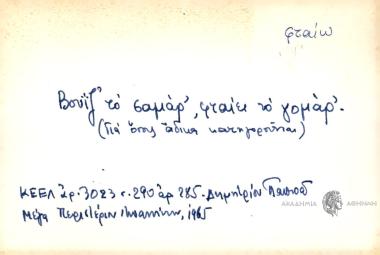 φταίω
Βουΐζ' τὸ σαμάρ', φταίει τὸ γομάρ'.
(Γιὰ ὅσους ἄδικα κατηγοροῦνται)
ΚΕΕΛ ἀρ. 3023 σ. 290 ἀρ 285. Δημητρίου
Μέγα Περιστέριον Ἰωαννίνων, 1965
ΑΚΑΔΗΜΙΑ ΑΘΗΝΩΝ